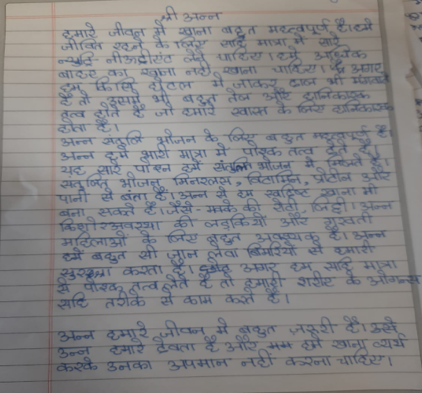 श्री अन्न
हमारे जीवन में खाना बहुत महत्वपूर्ण है। हमे
जीवित रहने के लिए सही मात्रा में सारे
लेने चाहिए। हमे अधिक
बाहर का खाना नही खाना चाहिए। अगर
हम किसी होटल में जाकर खाना भी
है तो उसमे भी बहुत तेल और हानिकारक
तत्व होते है जो हमारे स्वास्थ के लिए हानिकारक
होता है।
अन्न संतुलित भोजन के लिए बहुत महत्वपूर्ण है
अन्न हमे सारी मात्रा में पोषक तत्व देते है।
यह सारे पोषण हमें संतुलित भोजन में मिलते है।
संतुलित भोजन मिनरलस, विटामिन, प्रोटीन और
पानी से बनता है। अन्न से हम स्वादिष्ट खाना भी
बना सकते है। जैसे - मक्के की रोटी, अन्न
किशोरअवस्था की लड़कियों और
महिलाओं के लिए बहुत आवश्यक है। अन्न
हमे बहुत सी जान लेवा बिमारियों से हमारी
सुरक्षा करता है। अगर हम सही मात्रा
में पोषक तत्व लेते है तो हमारी शरीर के
सही तरीके से काम करते है।
अन्न हमारे जीवन में बहुत जरूरी है।
अन्न हमारे देवता है और हमे खाना व्यर्थ
करके उनका अपमान नही करना चाहिए।